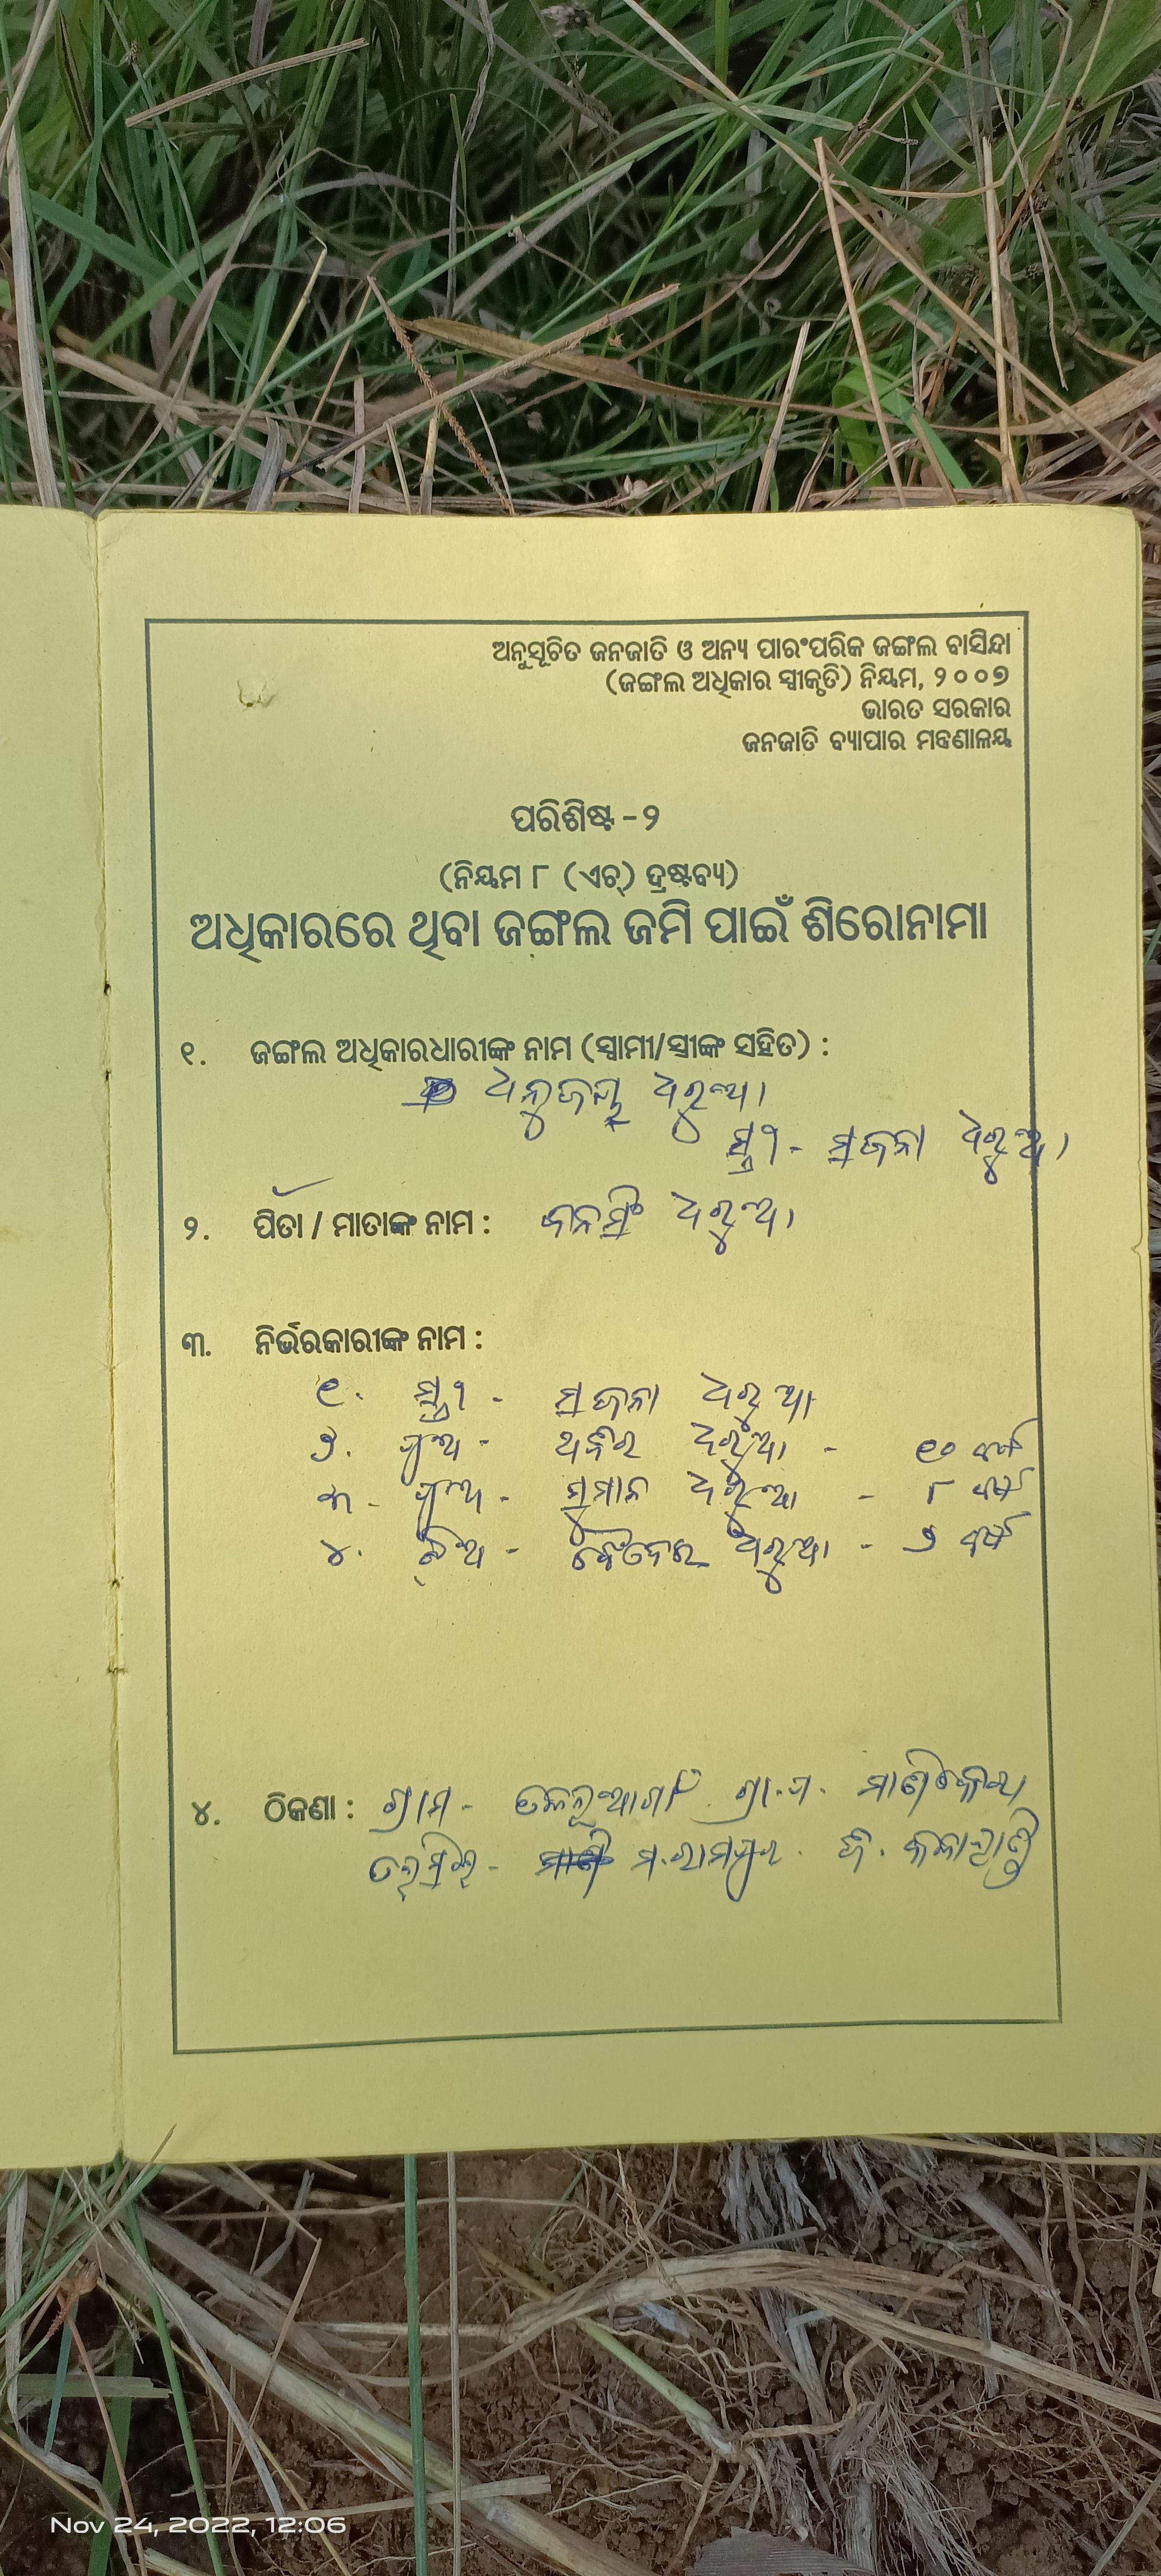 ଅନୁସୂଚିତ ଜନଜାତି ଓ ଅନ୍ୟ ପାରଂପରିକ ଜଙ୍ଗଲ ବାସିନ୍ଦା
(ଜଙ୍ଗଲ ଅଧିକାର ସ୍ୱୀକୃତି) ନିୟମ, ୨୦୦୭
ଭାରତ ସରକାର
ଜନଜାତି ବ୍ୟାପାର ମନ୍ତ୍ରଣାଳୟ
ପରିଶିଷ୍ଟ -୨
(ନିୟମ ୮ (ଏଚ୍) ଦ୍ରଷ୍ଟବ୍ୟ)
ଅଧିକାରରେ ଥିବା ଜଙ୍ଗଲ ଜମି ପାଇଁ ଶିରୋନାମା
୧. ଜଙ୍ଗଲ ଅଧିକାରଧାରୀଙ୍କ ନାମ (ସ୍ୱାମୀ/ସ୍ତ୍ରୀଙ୍କ ସହିତ) :
ଧରୁଆ
ସ୍ତ୍ରୀ - ଧରୁଆ
୨. ପିତା / ମାତାଙ୍କ ନାମ : ବନସିଂ ଧରୁଆ
୩. ନିର୍ଭରକାରୀଙ୍କ ନାମ :
୧. ସ୍ତ୍ରୀ - ଧରୁଆ
୨. ପୁଅ - ଧରୁଆ - ୧୦ ବର୍ଷ
୩ - ପୁଅ - ଧରୁଆ - ୮ ବର୍ଷ
୪. ଝିଅ - ଧରୁଆ - ୬ ବର୍ଷ
୪. ଠିକଣା : ଗ୍ରାମ - ଗ୍ରା.ପ. ମାଣିକେରା
ତହସିଲ - ମ.ରାମପୁର. ଜି. କଳାହାଣ୍ଡି
Nov 24, 2022, 12:06